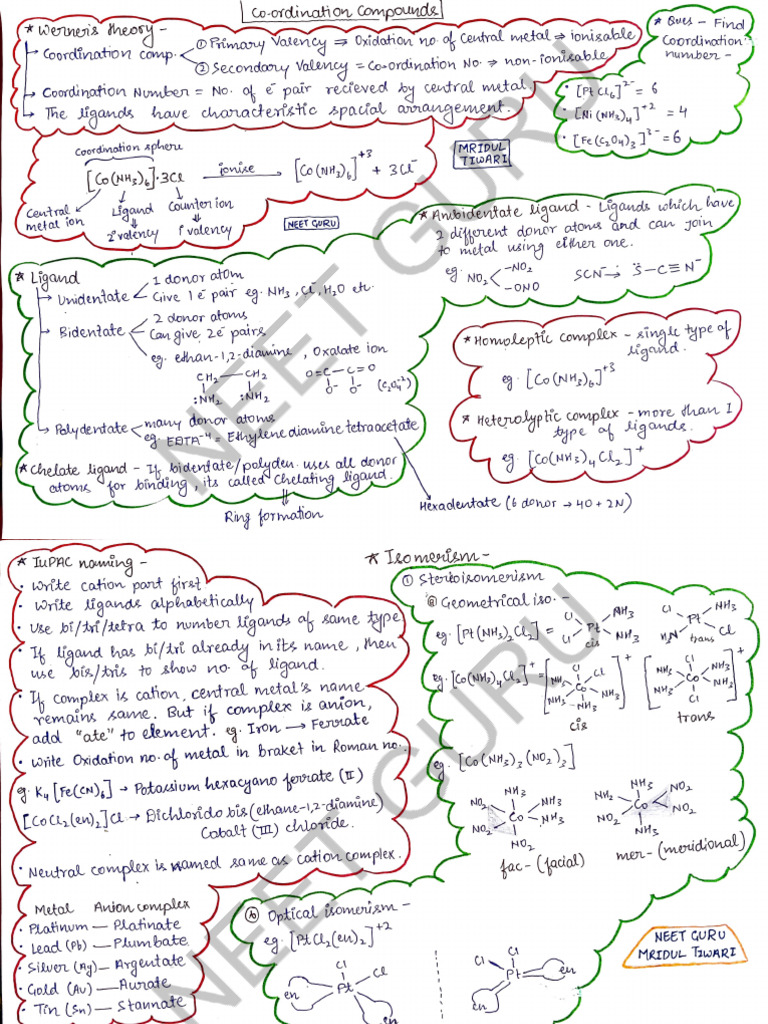 Co-ordination Compounds
* Werner's theory -
Coordination comp.
① Primary Valency ⇒ Oxidation no. of Central metal ⇒ ionisable
② Secondary Valency = Co-ordination No. ⇒ non-ionisable
Coordination Number = No. of e⁻ pair recieved by central metal.
The ligands have characteristic spacial arrangement.
* Ques - Find
Coordination
number -
• [PtCl₆]²⁻ = 6
• [Ni(NH₃)₄]⁺² = 4
• [Fe(C₂O₄)₃]³⁻ = 6
Coordination sphere
[Co(NH₃)₆]·3Cl ionise → [Co(NH₃)₆]⁺³ + 3Cl⁻
Central
metal ion
Ligand
2° valency
Counter ion
1° valency
MRIDUL
TIWARI
NEET GURU
* Ambidentate ligand - Ligands which have
2 different donor atoms and can join
to metal using either one.
eg. NO₂ < -NO₂
-ONO
SCN⁻ → S-C≡N⁻
* Ligand
→ Unidentate
1 donor atom
Give 1 e⁻ pair eg. NH₃, Cl⁻, H₂O etc.
→ Bidentate
2 donor atoms
Can give 2e⁻ pairs
eg. ethan-1,2-diamine, Oxalate ion
CH₂ — CH₂
:NH₂ :NH₂
O=C-C=O
O⁻ O⁻ (C₂O₄⁻²)
→ Polydentate
many donor atoms
eg. EDTA⁻⁴ = Ethylene diamine tetraacetate
* Chelate ligand - If bidentate/polyden. uses all donor
atoms for binding, its called Chelating ligand.
Ring formation
Hexadentate (6 donor → 4O + 2N)
* Homoleptic complex - single type of
ligand.
eg. [Co(NH₃)₆]⁺³
* Heterolyptic complex - more than 1
type of ligands.
eg. [Co(NH₃)₄Cl₂]⁺
* IUPAC naming -
• Write cation part first
• Write ligands alphabetically
• Use bi/tri/tetra to number ligands of same type
• If ligand has bi/tri already in its name, then
use bis/tris to show no. of ligand.
• If complex is cation, central metal's name
remains same. But if complex is anion,
add "ate" to element. eg. Iron → Ferrate
• Write Oxidation no. of metal in braket in Roman no.
eg. K₄[Fe(CN)₆] → Potassium hexacyano ferrate (II)
[CoCl₂(en)₂]Cl → Dichlorido bis(ethane-1,2-diamine)
Cobalt (III) chloride.
• Neutral complex is named same as cation complex.
Metal Anion complex
• Platinum — Platinate
• Lead (Pb) — Plumbate
• Silver (Ag) — Argentate
• Gold (Au) — Aurate
• Tin (Sn) — Stannate
* Isomerism -
① Steroisomerism
ⓐ Geometrical iso. -
eg. [Pt(NH₃)₂Cl₂] =
Cl NH₃
Pt
Cl NH₃
cis
Cl NH₃
Pt
H₃N Cl
trans
eg. [Co(NH₃)₄Cl₂]⁺ =
Cl
NH₃ Cl
Co
NH₃ NH₃
NH₃
+
cis
Cl
NH₃ NH₃
Co
NH₃ NH₃
Cl
+
trans
eg. [Co(NH₃)₃(NO₂)₃]
NH₃
NO₂ NH₃
Co
NO₂ NH₃
NO₂
fac- (facial)
NH₃
NH₂ NO₂
Co
NO₂ NO₂
NH₃
mer- (meridional)
ⓑ Optical isomerism -
eg. [PtCl₂(en)₂]⁺²
Cl
Cl
Pt
en
en
Cl
Cl
Pt
en
en
NEET GURU
MRIDUL TIWARI
NEET GURU
NEET GURU